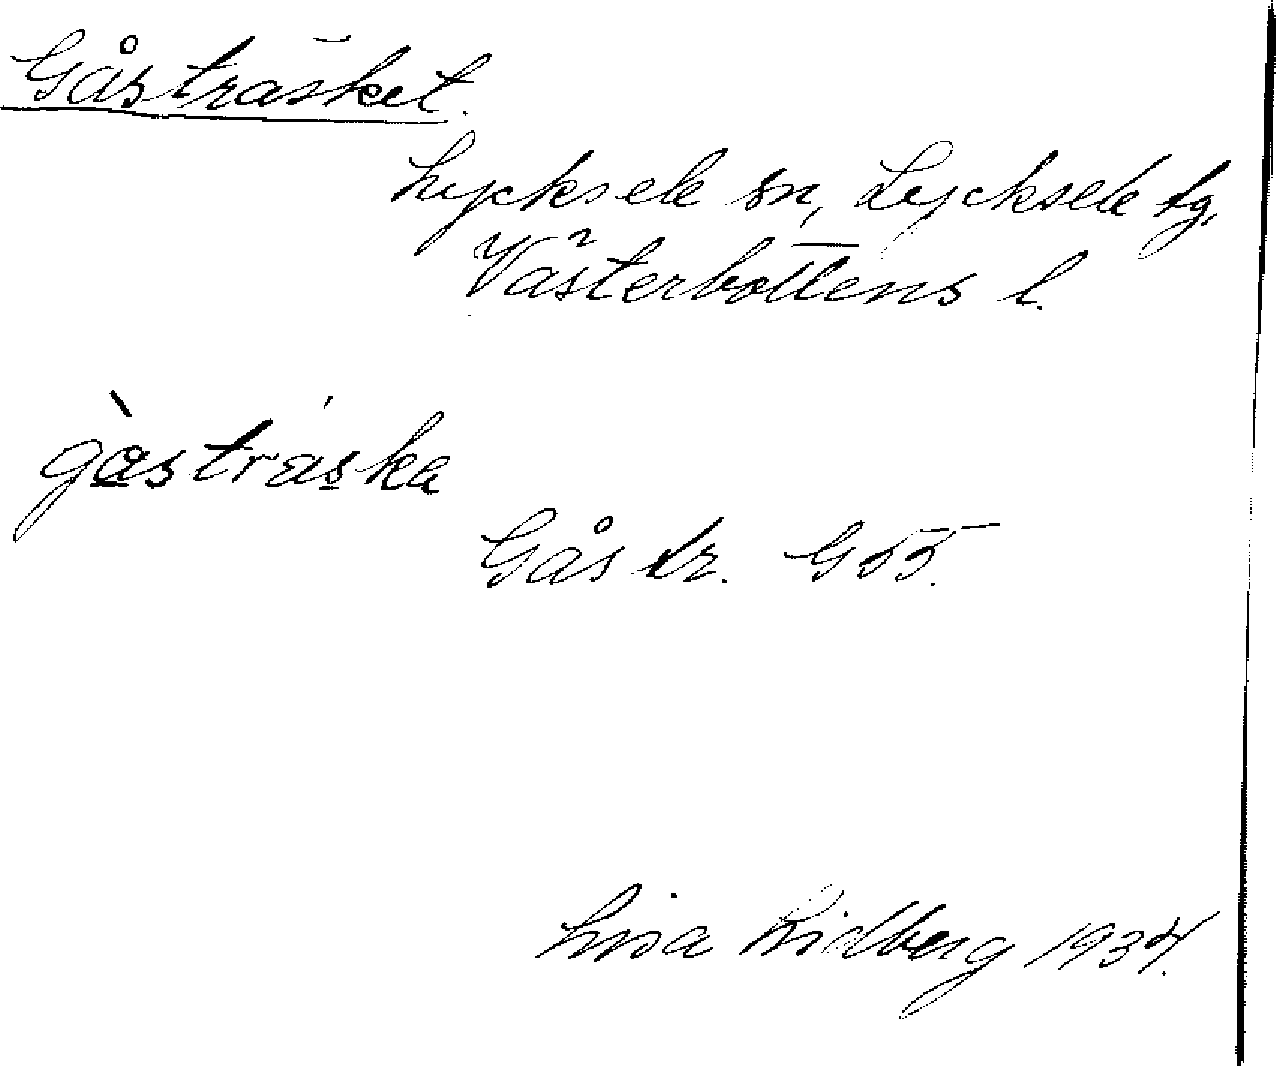 Gåsträsket.
Lycksele sn, Lycksele lg,
Västerbottens l.
gàsträska
Gås tr. G55.
Lisa Lidberg 1934.